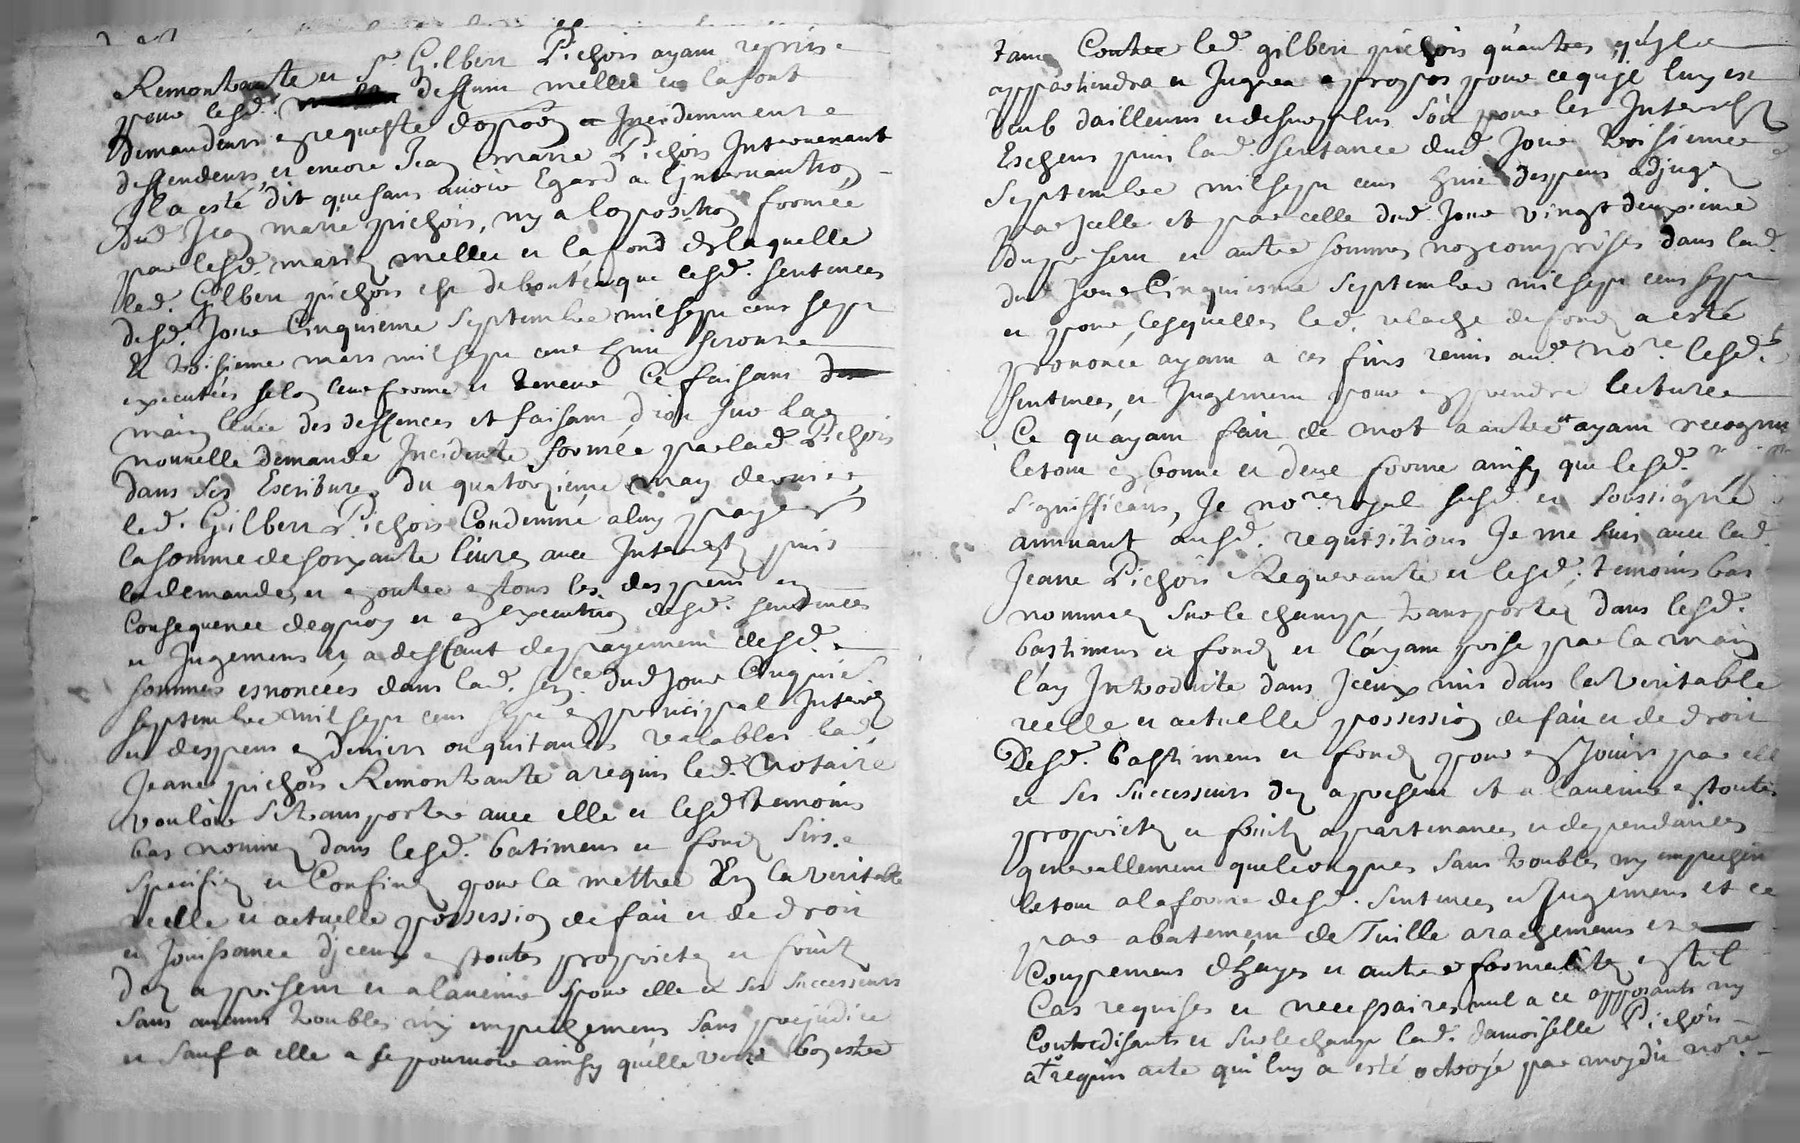 Remontrante et Sr Gilbert Pichois ayant reprise
pour lesd. deffunt mellet et lafont
demandeurs en requeste d'oppôon et Incidemment
deffendeurs, et encore Jean marie Pichois Intervenant
Il a esté dit que sans avoir Egard a l'Intervention
dud. Jean marie pichois, ny a l'opposition formée
par lesd. mariez mellet et lafond de laquelle
led. Gilbert pichois est debouté que lesd. sentences
desd. Jour Cinquieme Septembre mil sept cens sept
et troisieme mars mil sept cens huit seront
executées selon leur forme et teneur Ce faisant
main levée des deffences et faisant droit sur la
nouvelle demande Incidente formée par lad. Pichois
dans ses Escritures du quatorzieme may dernier,
led. Gilbert Pichois Condemné a luy payer
la somme de soixante livres avec Interests puis
la demande, et en outre en tous les despens en
Consequence de quoy et en execution desd. sentences
et Jugemens et a deffaut de payement desd.
sommes enoncées dans lad. sence dud. Jour Cinquie
septembre mil sept cens sept en principal Interests
et despens en deniers ou quitances valables lad.
Jeane pichois Remontrante a requis led. Notaire
vouloir se transporter avec elle et lesd. temoins
bas nommez dans lesd. batimens et fonds sus.
speciffiez et Confinez pour la mettre En la veritable
reelle et actuelle possession de fait et de droit
et Jouissance d'Iceux en toutes proprietez et fruits
dez a present et a l'avenir pour elle et ses successeurs
sans aucuns troubles ny empechemens sans prejudice
et sauf a elle a se pourvoir ainsy qu'elle verra bon estre
tant Contre led. gilbert pichois qu'autres qu'Il
appartiendra et Jugera a propos pour ce qui luy est
deub d'ailleurs et de surplus soit pour les Interests
Escheus puis lad. sentance dud. Jour troisieme
septembre mil sept cens huit despens adjugez
par Icelle et par celle dud. Jour vingt deuxieme
du present et autre sommes non comprises dans lad.
dud. Jour Cinquieme septembre mil sept cens sept
et pour lesquelles led. relache de fonds a esté
prononcé ayant a ces fins remis aud. nore lesd.
sentences, et Jugement pour en prendre lecture
Ce qu'ayant fait de mot a autre et ayant recognu
le tout en bonne et deue forme ainsy que lesd.
significaôns, Je nore royal susd. et soussigné
annuant ausd. requisitions Je me suis avec lad.
Jeane Pichois Requerante et lesd. temoins bas
nommez sur le champ transportez dans lesd.
bastimens et fonds et l'ayant prise par la main
l'ay Introduite dans Iceux mis dans la veritable
reelle et actuelle possession de fait et de droit
Desd. bastimens et fonds pour en Jouir par elle
et ses successeurs dez a present et a l'avenir en toutes
proprietez et fruits appartenances et dependances
generallement quelconques sans troubles ny empechemt
le tout a la forme desd. sentences et Jugemens et ce
par abatement de Tuille arachemens et
Coupemens d'hayes et autre formalitez en tel
Cas requises et necessaires nul a ce opposants ny
Contredisants et sur le champ lad. damoiselle Pichois
a requis acte qui luy a esté octroyé par moydit nore